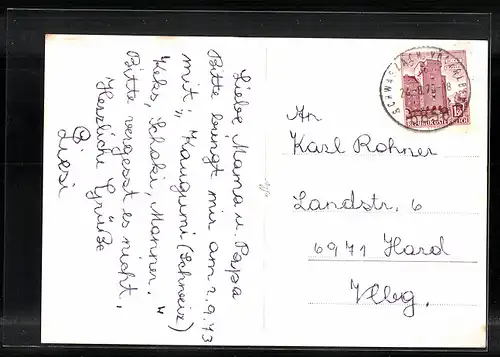 Liebe Mama u. Papa
Bitte bringt mir am 2.9.73
mit: „Kaugumi (Schweiz)
Keks, Schoki, Manner."
Bitte vergesst es nicht.
Herzliche Grüße
Liesi
An
Karl Rohner
Landstr. 6
6971 Hard
Vlbg.
SCHWARZACH, VORARLBERG
REPUBLIK ÖSTERREICH